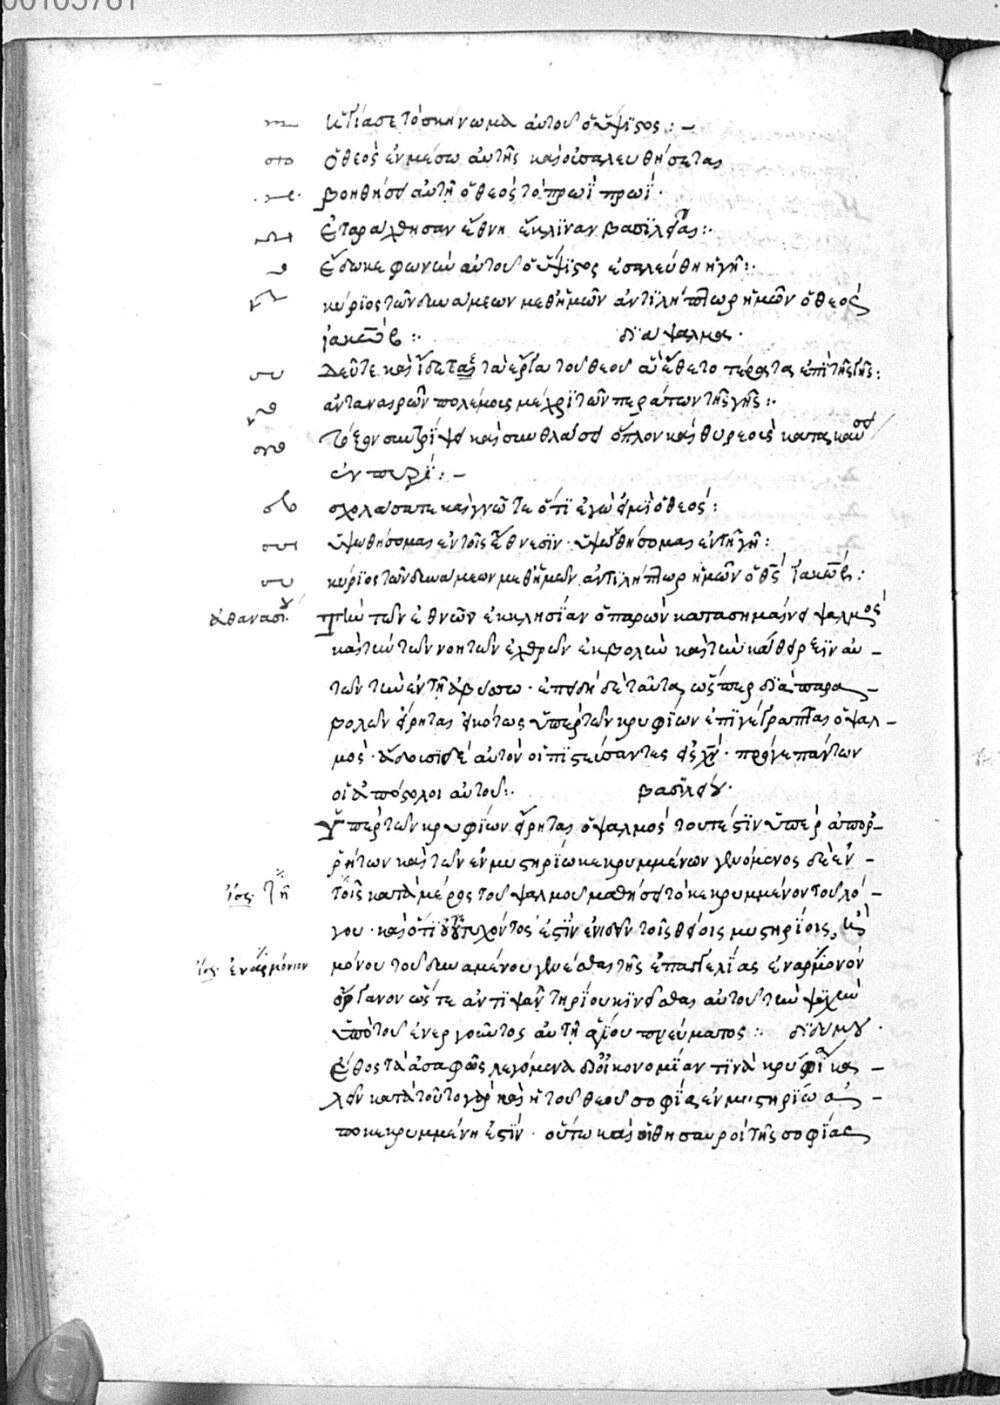 00105781
ἡγίασε τὸ σκήνωμα αὐτοῦ ὁ ὕψιστος :-
ὁ θεὸς ἐν μέσω αὐτῆς καὶ οὐ σαλευθήσεται
βοηθήσει αὐτῆ ὁ θεὸς τὸ πρωῒ πρωΐ·
ἐταράχθησαν ἔθνη ἔκλϊναν βασϊλεῖαι:·
ἔδωκε φωνὴν αὐτοῦ ὁ ὕψϊστος ἐσαλεύθη ἡ γῆ:·
κύρϊος τῶν δυνάμεων μεθ' ἡμῶν ἀντϊλήπτωρ ἡμῶν ὁ θεὸς
ϊακώβ :· δϊάψαλμα·
Δεῦτε καὶ ἴδετε τὰ ἔργα τοῦ θεοῦ ἃ ἔθετο τέρατα ἐπὶ τῆς γῆς:
ἀνταναιρῶν πολέμους μέχρι τῶν περάτων τῆς γῆς:·
τόξον συντρίψει καὶ συνθλάσει ὅπλον καὶ θυρεοὺς κατακαύσει
ἐν πυρί :-
σχολάσατε καὶ γνῶτε ὅτϊ ἐγώ εἰμϊ ὁ θεός:
ὑψωθήσομαι ἐν τοῖς ἔθνεσϊν· ὑψωθήσομαι ἐν τῆ γῆ:
κύρϊος τῶν δυνάμεων μεθ' ἡμῶν ἀντϊλήπτωρ ἡμῶν ὁ θς ϊακώβ:
ἀθανασίου τὴν τῶν ἐθνῶν ἐκκλησίαν ὁ παρὼν κατασημαίνει ψαλμὸς
καὶ τὴν τῶν νοητῶν ἐχθρῶν ἐκβολὴν καὶ τὴν καθείρξϊν αὐ-
τῶν τὴν ἐν τῆ ἀβύσσω· ἐπειδὴ δὲ ταῦτα ὥσπερ δϊὰ παρα-
βολῶν εἴρηται εἰκότως ὑπὲρ τῶν κρυφίων ἐπϊγέγραπται ὁ ψαλ-
μός· ᾄδουσϊ δὲ αὐτὸν οἱ πϊστεύσαντες εἰς χν· πρό γε πάντων
οἱ ἀπόστολοι αὐτοῦ:· βασϊλείου·
Ὑπὲρ τῶν κρυφίων εἴρηται ὁ ψαλμὸς τουτέστϊν ὑπὲρ ἀπορ-
ρήτων καὶ τῶν ἐν μυστηρίω κεκρυμμένων γενόμενος δὲ ἐν-
τοῖς κατὰ μέρος τοῦ ψαλμοῦ μαθήσει τὸ κεκρυμμένον τοῦ λό-
ἴσ. τῆ
γου· καὶ ὅτϊ οὐ τοῦ τυχόντός ἐστϊν ἐνιδεῖν τοῖς θείοις μυστηρίοις,
ἴσ. ἐναρμόνιον μόνου τοῦ δυναμένου γενέσθαι τῆς ἐπαγγελίας ἐναρμόνϊον
ὄργανον ὥστε ἀντϊ ψαλτηρίου κϊνεῖσθαι αὐτοῦ τὴν ψυχὴν
ὑπὸ τοῦ ἐνεργοῦντος αὐτῆ ἁγίου πνεύματος:· δϊδύμου·
ἔθος τὰ ἀσαφῶς λεγόμενα δι' οἰκονομίαν τϊνὰ κρύφϊα κα-
λεῖν κατὰ τοῦτο γὰρ καὶ ἡ τοῦ θεοῦ σοφία ἐν μυστηρίω ἀ-
ποκεκρυμμένη ἐστϊν· οὕτω καὶ οἱ θησαυροὶ τῆς σοφίας